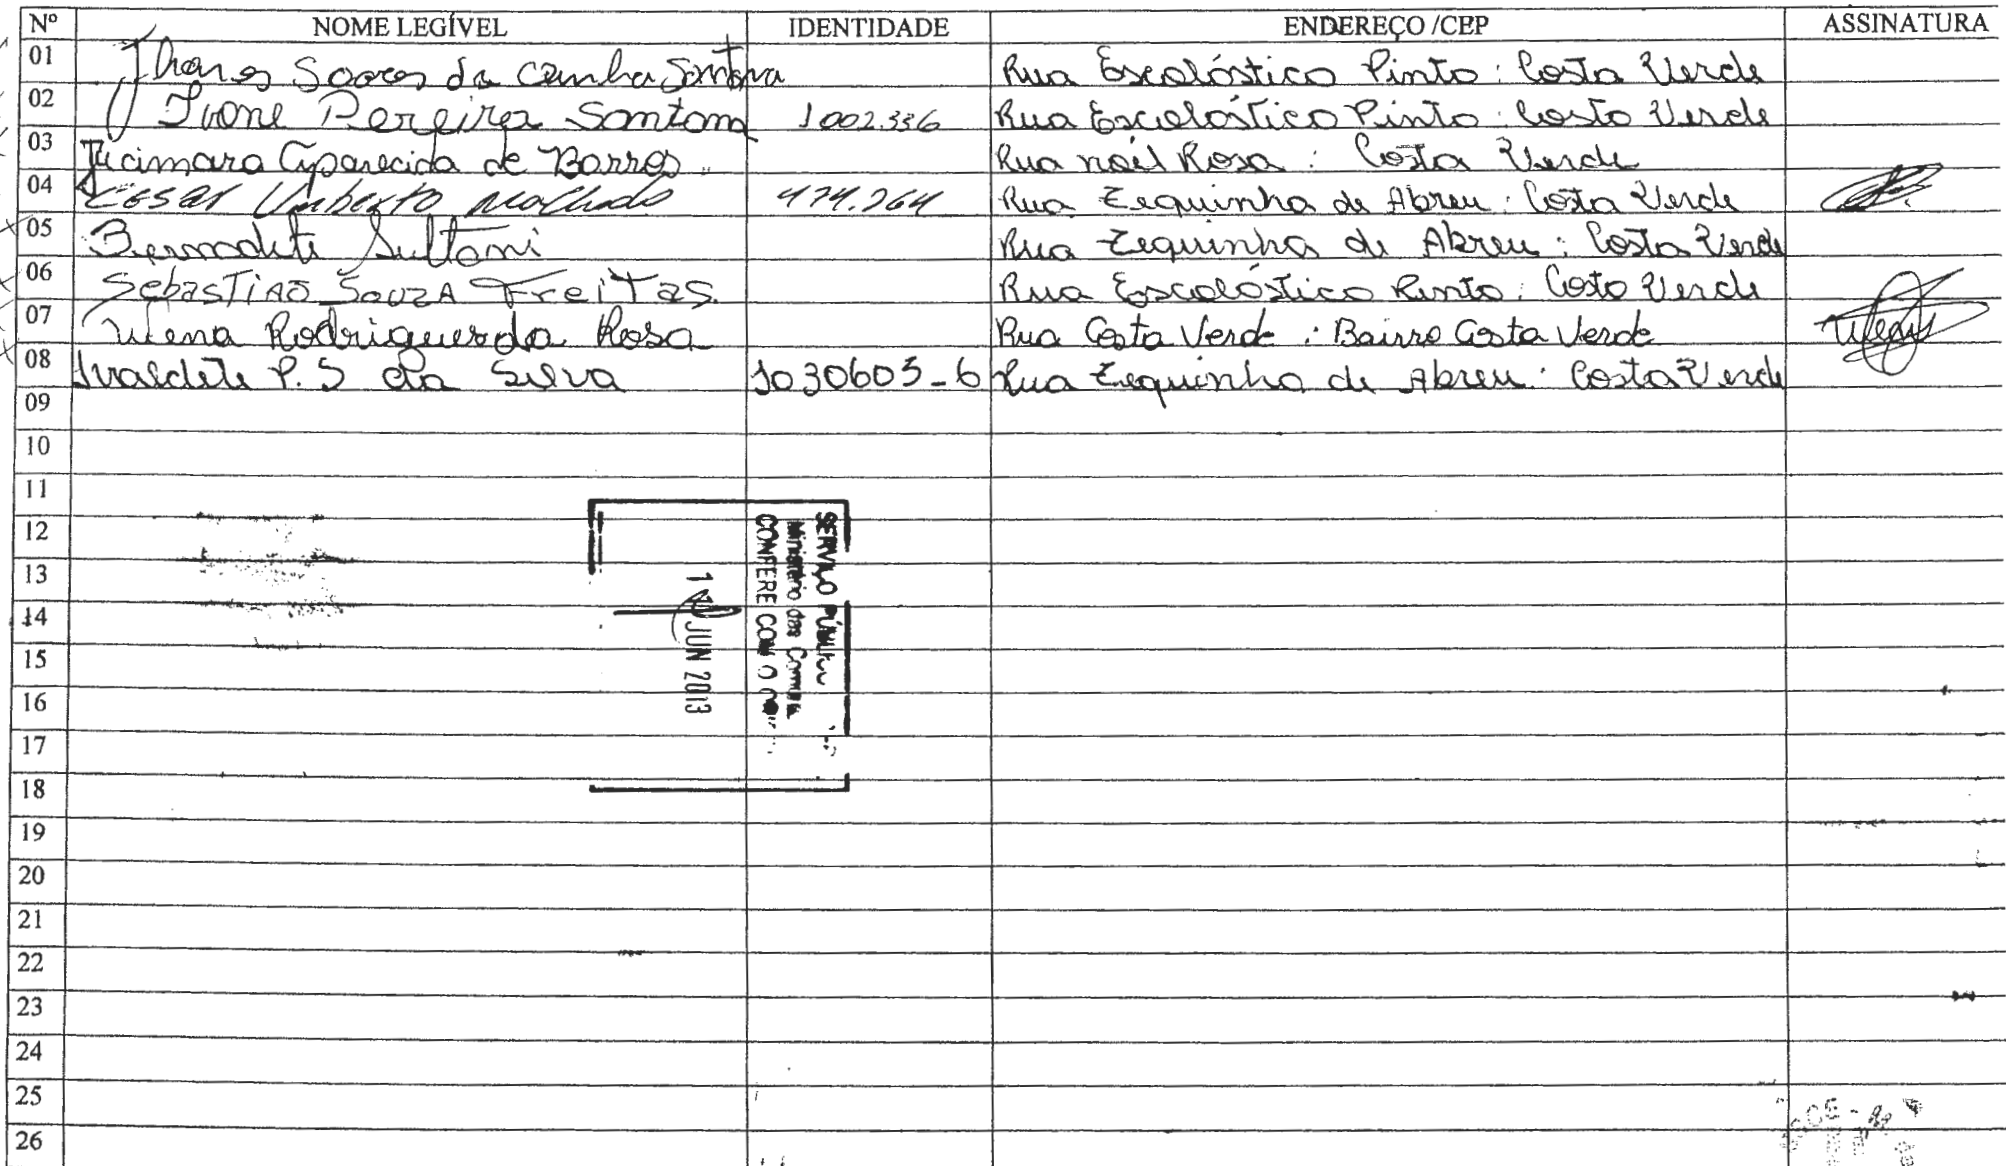 Nº NOME LEGÍVEL IDENTIDADE ENDEREÇO /CEP ASSINATURA
01 Soares da Cunha Santana Rua Escolóstico Pinto : Costa Verde
02 Ivone Pereira Santana 1002.336 Rua Escolóstico Pinto : Costa Verde
03 Jucimara Aparecida de Barros Rua noel Rosa : Costa Verde
04 Cesar Umberto Machado 474.264 Rua Zequinha de Abreu : Costa Verde
05 Bernadete Sultani Rua Zequinha de Abreu : Costa Verde
06 Sebastião Souza Freitas Rua Escolóstico Pinto : Costa Verde
07 Rodrigues da Rosa Rua Costa Verde : Bairro Costa Verde
08 Ivaldete P. S da Silva 1030605-6 Rua Zequinha de Abreu : Costa Verde
09
10
11
12
13
14
15
16
17
18
19
20
21
22
23
24
25
26
SERVIÇO PÚBLICO
Ministério das
CONFERE COM O
JUN 2013